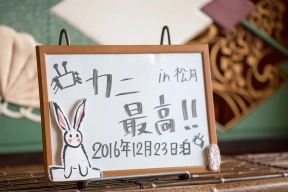 カニ in 松月
最高!!
2016年12月23日